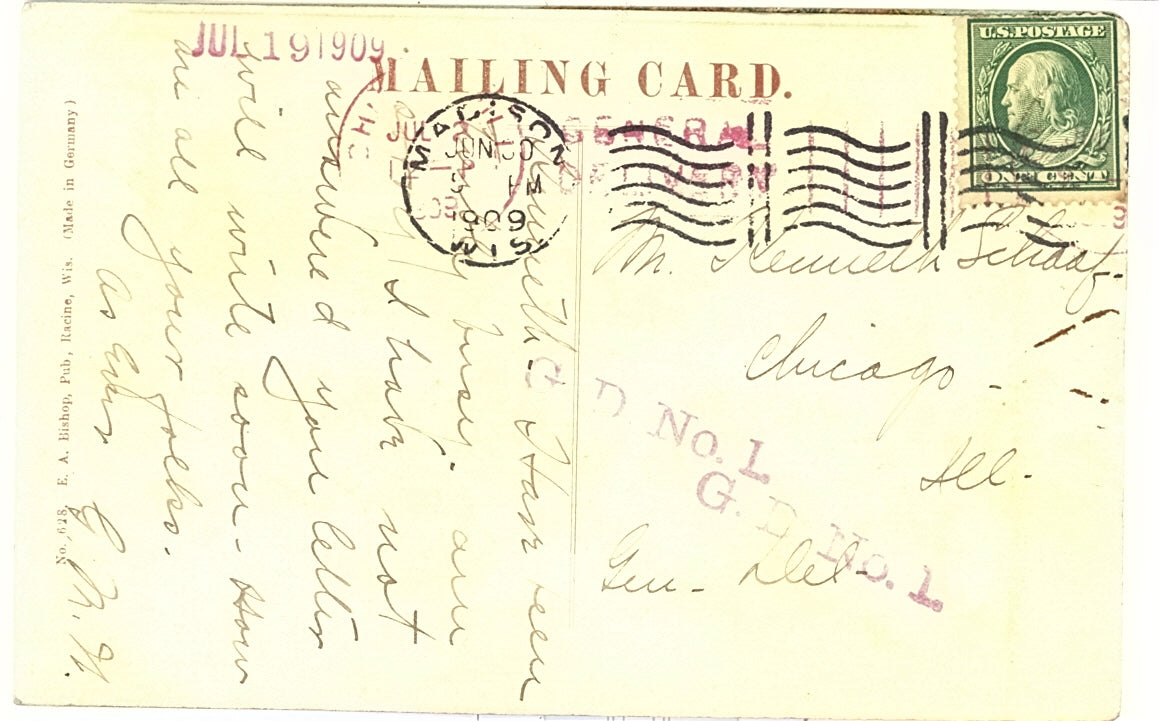 JUL 19 1909
MAILING CARD.
U.S. POSTAGE
ONE CENT
MADISON
JUN 30
PM
1909
WIS.
GENERAL
DELIVERY
Mr. Kenneth Schaaf.
Chicago -
Ill -
Gen - Del -
G. D. No. 1
G. D. No. 1
Kenneth - Have been
busy - am
I have not
answered your letter
will write soon - How
are all your folks.
As Ever
G. M. H.
No. 628, E. A. Bishop, Pub, Racine, Wis. (Made in Germany)